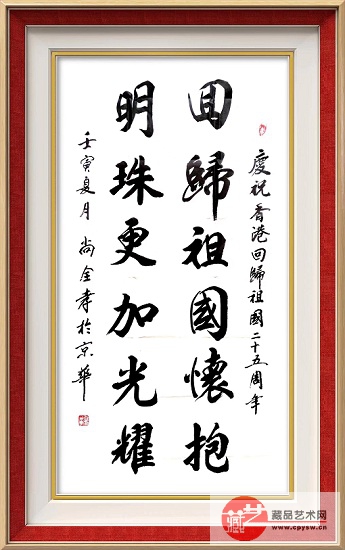 慶祝香港回歸祖國二十五周年
回歸祖國懷抱
明珠更加光耀
壬寅夏月 尚全孝於京華
藏艺
藏品艺术网
www.cpysw.cn